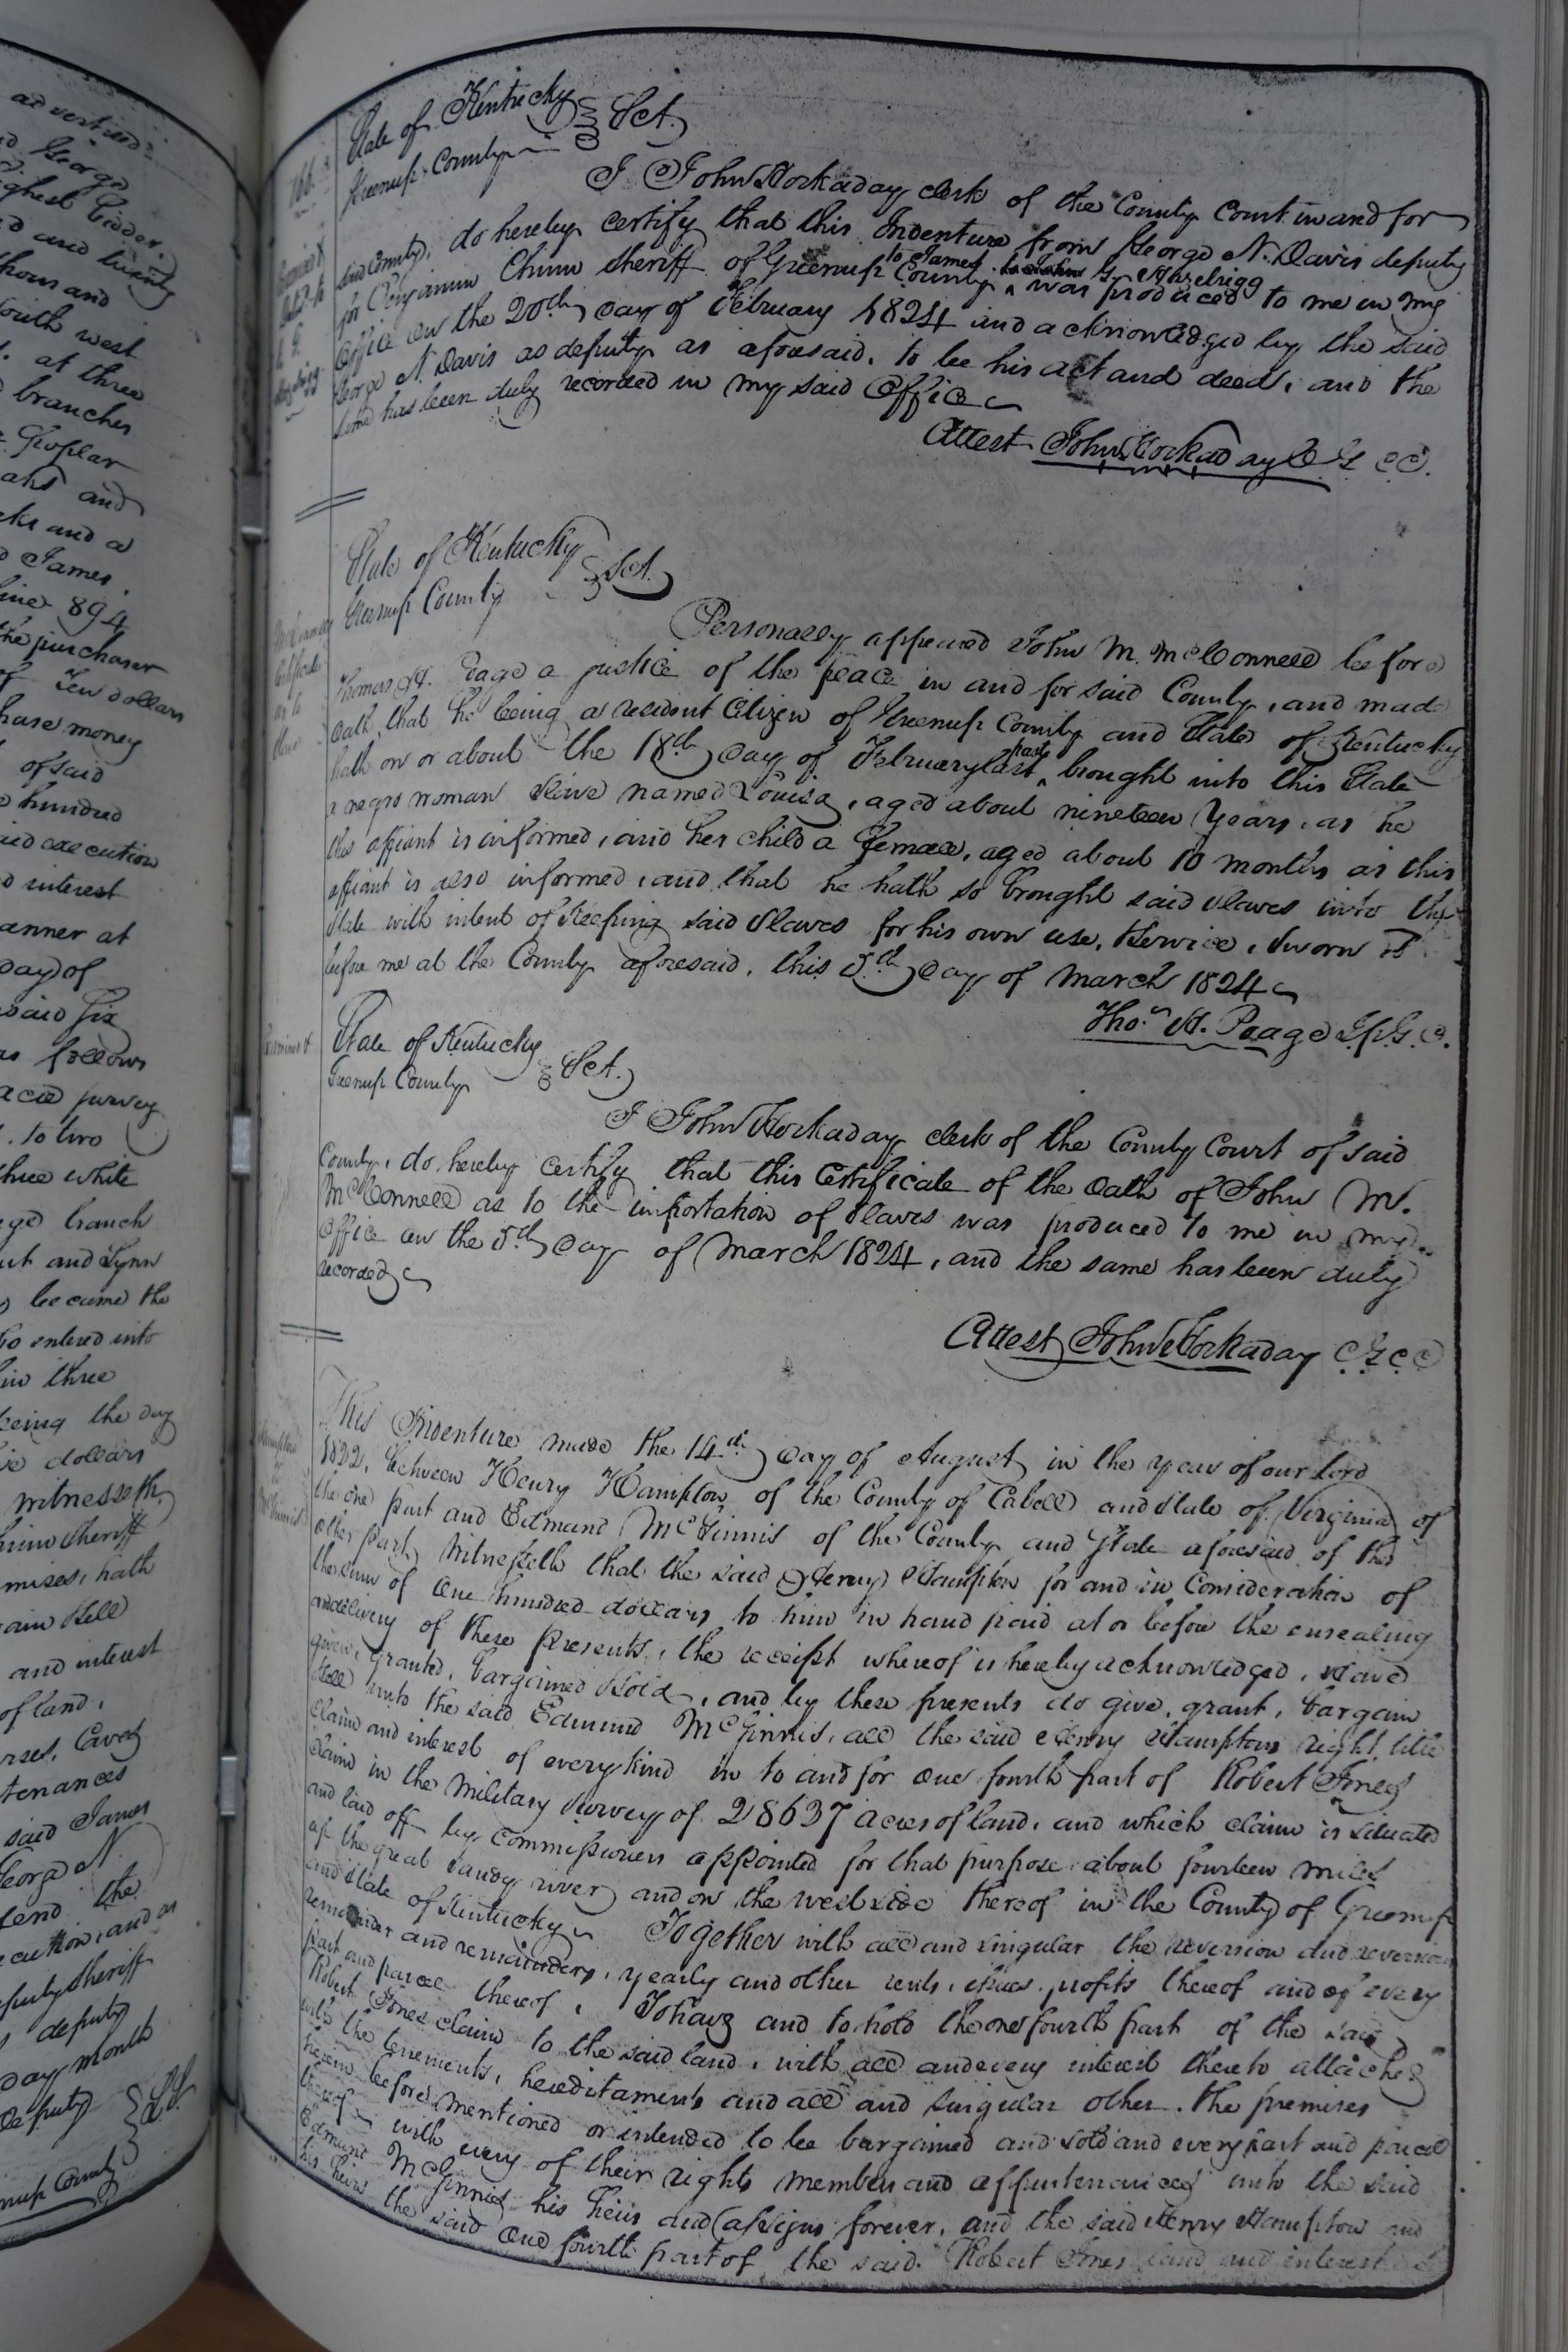 advertised
George
highest bidder
and twenty
thous and
South west
at three
branches
Poplar
and
and a
James
line 894
the purchaser
of Ten dollars
chase money
of said
hundred
said execution
interest
manner at
day of
said Six
as follows
survey
. to two
three white
branch
and Lynn
became the
entered into
in three
being the day
dollars
witnesseth
Sheriff
mises, hath
Sell
and interest
of land,
tenances
said James
George N.
the
ecution, and as
deputy Sheriff
deputy
day month
deputy
LS.
State of Kentucky
Greenup County Sct.
I John Hockaday clerk of the County Court in and for
said County, do hereby certify that this Indenture from George N. Davis deputy
for Benjamin Chinn sheriff of Greenup County to James G. Hazelrigg was produced to me in my
Office on the 20th day of February 1824 and acknowledged by the said
George N. Davis as deputy as aforesaid, to be his act and deed, and the
same has been duly recorded in my said Office
Attest John Hockaday C. G. C. C.
State of Kentucky
Greenup County Sct.
Personally appeared John M. McConnell before
Thomas H. Poage a justice of the peace in and for said County, and made
oath, that he being a resident Citizen of Greenup County and State of Kentucky
hath on or about the 18th day of February last past brought into this State
a negro woman slave named Louisa, aged about nineteen years, as he
this affiant is informed, and her child a female, aged about 10 months as this
affiant is also informed, and that he hath so brought said slaves into this
State with intent of Keeping said slaves for his own use, & service, Sworn to
before me at the County aforesaid, this 5th day of March 1824
Thos. H. Poage J.P.G.C.
Examined
State of Kentucky
Greenup County Sct.
I John Hockaday clerk of the County Court of said
County, do hereby certify that this Certificate of the Oath of John M.
McConnell as to the importation of slaves was produced to me in my
Office on the 5th day of March 1824, and the same has been duly
recorded
Attest John Hockaday C. G. C. C.
Hampton
to
McGinnis
This Indenture made the 14th day of August in the year of our Lord
1822, between Henry Hampton of the County of Cabell and State of Virginia of
the one part and Edmund McGinnis of the County and State aforesaid of the
other part, Witnesseth that the said Henry Hampton for and in Consideration of
the sum of One hundred dollars to him in hand paid at or before the ensealing
and delivery of these presents, the receipt whereof is hereby acknowledged, Have
given, granted, bargained & sold, and by these presents do give, grant, bargain
& sell unto the said Edmund McGinnis, all the said Henry Hamptons right, title
claim and interest of every kind in to and for One fourth part of Robert Jones
claim in the Military Survey of 28637 acres of land, and which claim is situated
and laid off by Commissioners appointed for that purpose about fourteen miles
up the great sandy river and on the west side thereof in the County of Greenup
and State of Kentucky Together with all and singular the reversion and reversions
remainder and remainders, yearly and other rents, issues, profits thereof and of every
part and parcel thereof, To have and to hold the one fourth part of the said
Robert Jones claim to the said land, with all and every interest thereto attached
with the tenements, hereditaments and all and singular other, the premises
herein before mentioned or intended to be bargained and sold and every part and parcel
thereof with every of their rights members and appurtenances unto the said
Edmund McGinnis his heirs and assigns forever, and the said Henry Hampton and
his heirs the said One fourth part of the said Robert Jones land and interest